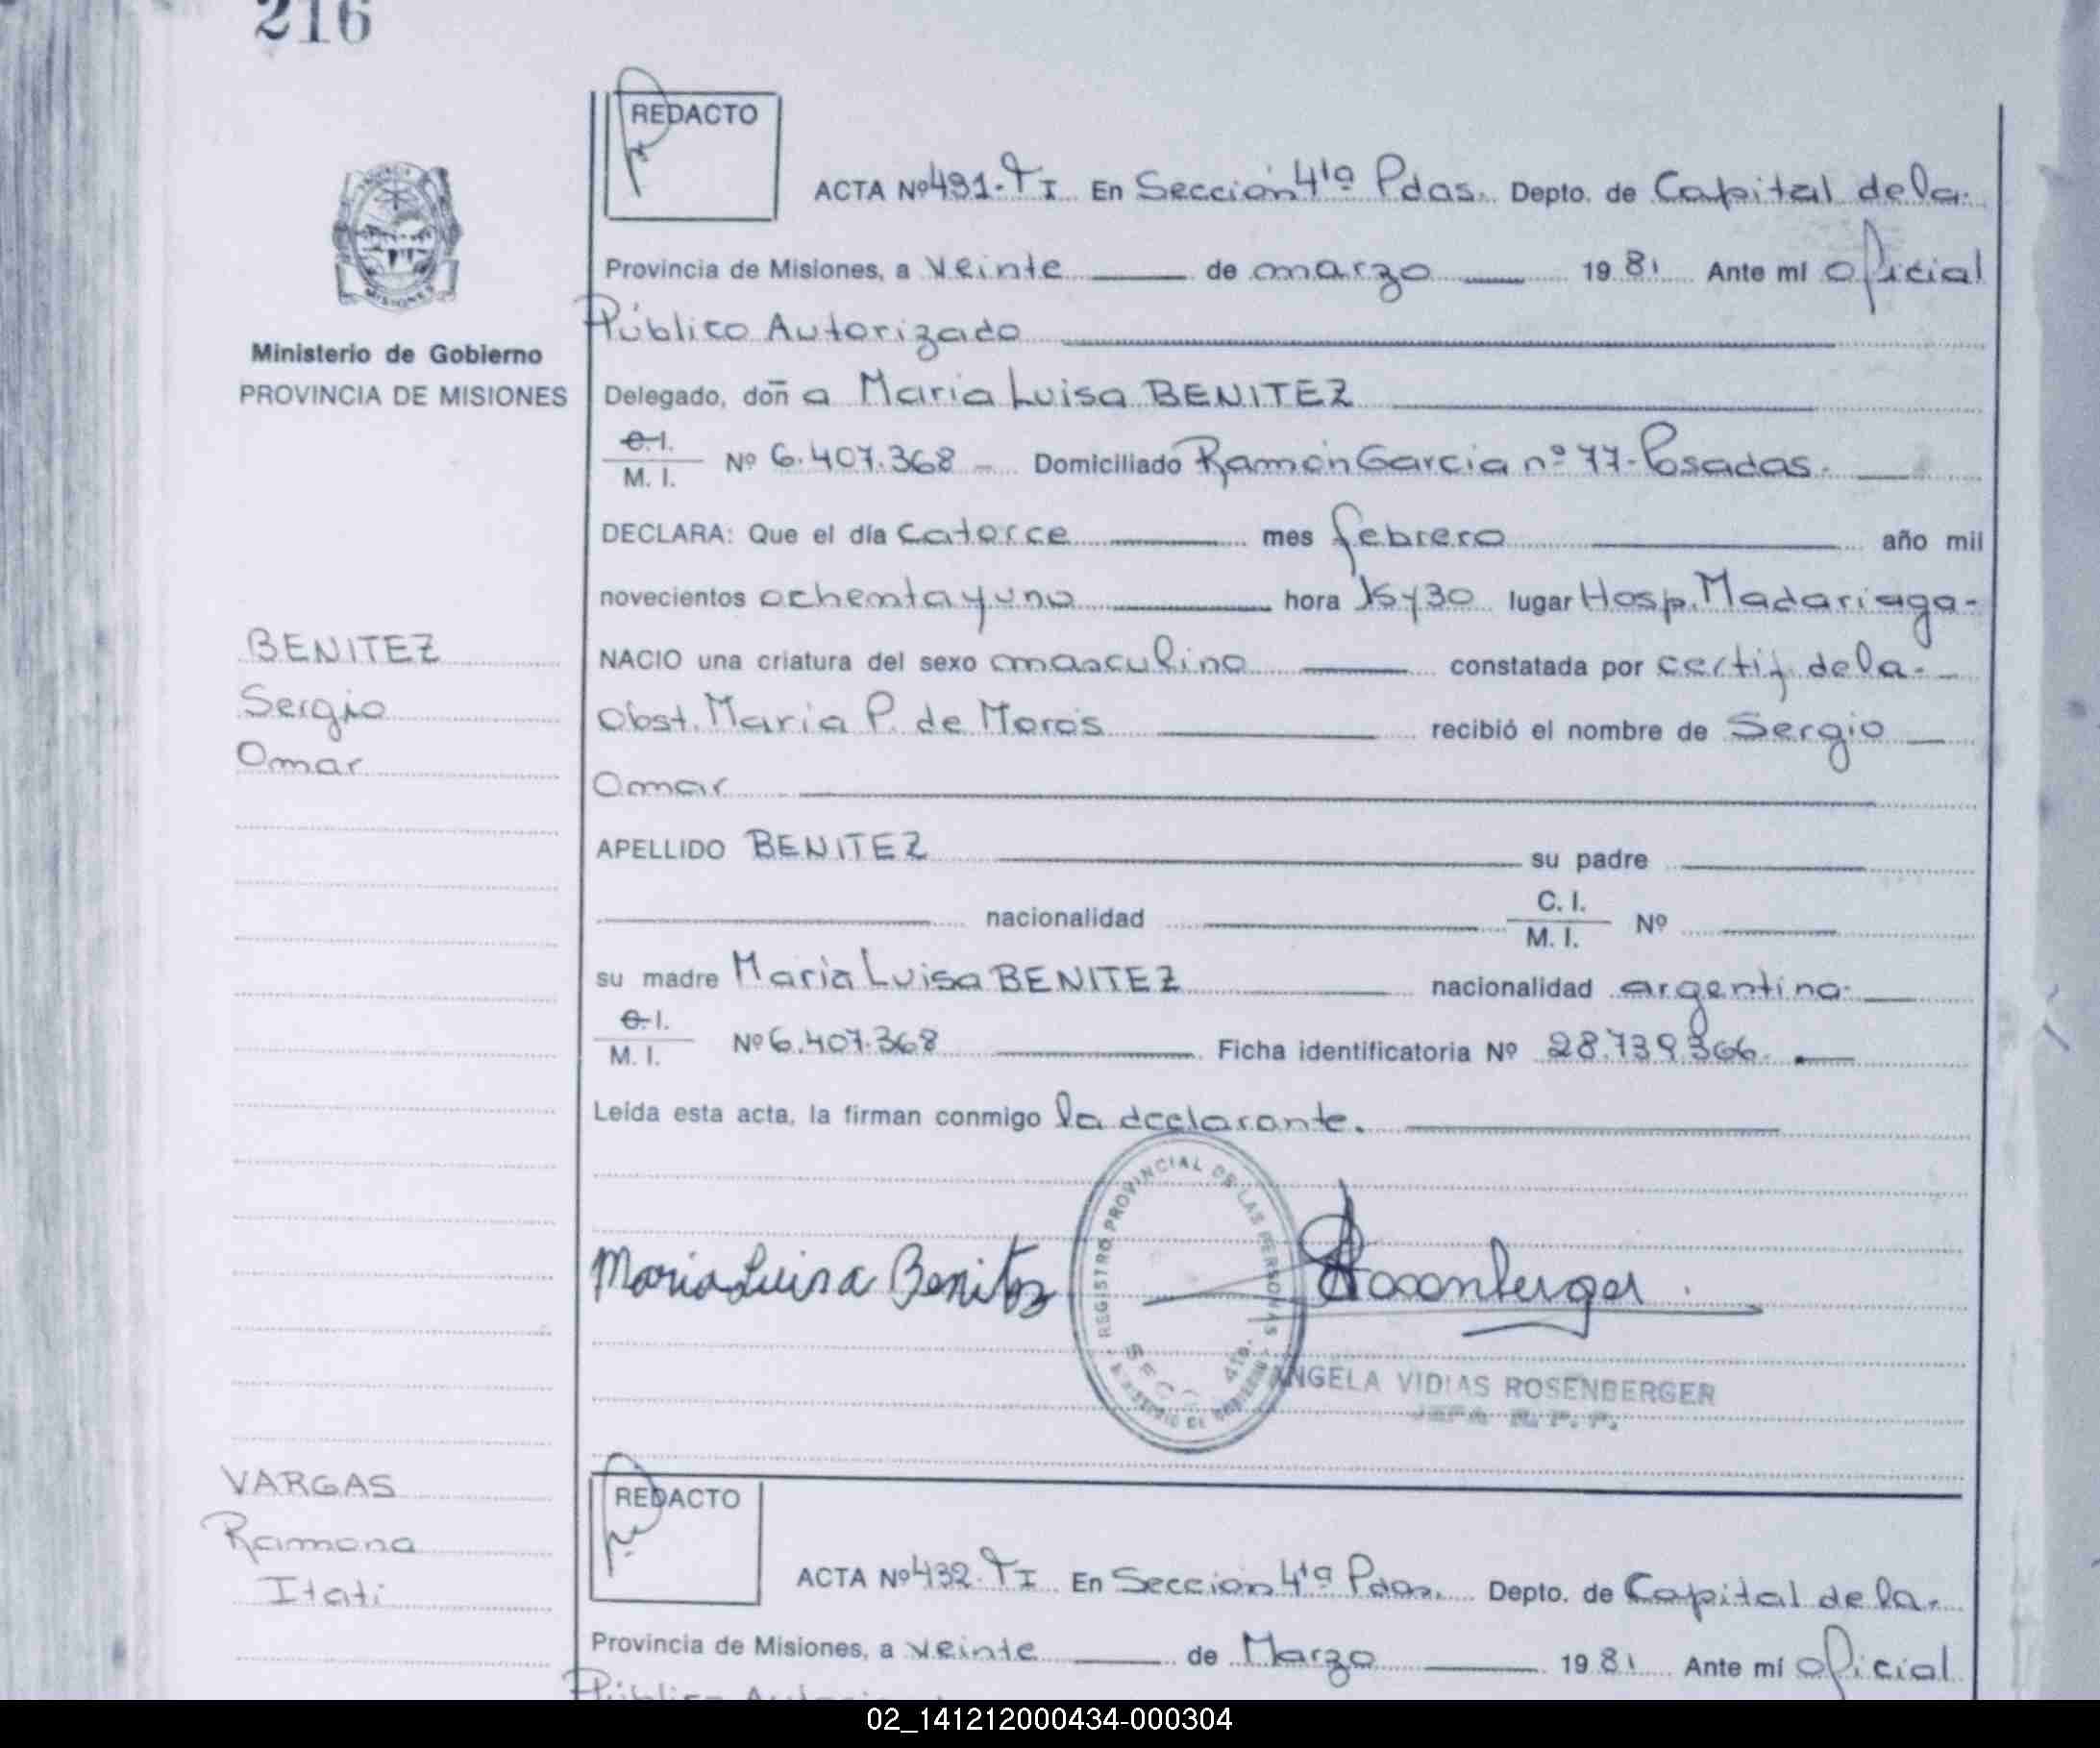 216
REDACTO
ACTA Nº 431-TI En Sección 4ta Pdas. Depto. de Capital de la.
Provincia de Misiones, a veinte de marzo 1981 Ante mí oficial
Público Autorizado
Ministerio de Gobierno
PROVINCIA DE MISIONES
Delegado, doña Maria Luisa BENITEZ
C.I.
M. I. Nº 6.407.368 - Domiciliado Ramón Garcia nº 77-Posadas.
DECLARA: Que el día catorce mes febrero año mil
novecientos ochenta y uno hora 15y30 lugar Hosp. Madariaga-
BENITEZ
NACIO una criatura del sexo masculino constatada por certif. de la.
Sergio
Obst. Maria P. de Moros recibió el nombre de Sergio
Omar
Omar
APELLIDO BENITEZ su padre
nacionalidad C. I.
M. I. Nº
su madre Maria Luisa BENITEZ nacionalidad argentina.
C.I.
M. I. Nº 6.407.368 Ficha identificatoria Nº 28.739.366.
Leída esta acta, la firman conmigo la declarante.
REGISTRO PROVINCIAL DE LAS PERSONAS
SECC 4ta.
MINISTERIO DE GOBIERNO
Maria Luisa Benitez
Rosenberger
ANGELA VIDIAS ROSENBERGER
JEFA R. P. P.
REDACTO
VARGAS
Ramona
Itati
ACTA Nº 432-TI En Sección 4ta Pdas. Depto. de Capital de la.
Provincia de Misiones, a veinte de Marzo 1981 Ante mí oficial
Público
02_141212000434-000304